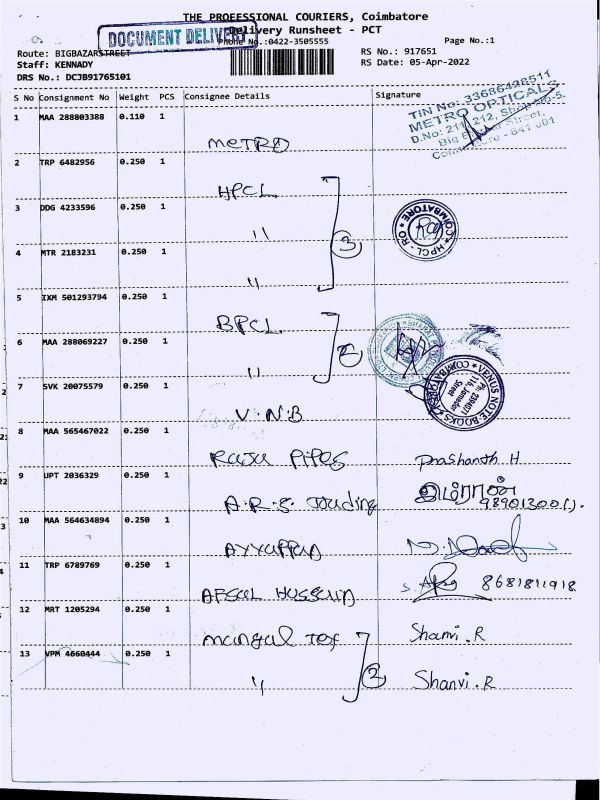 THE PROFESSIONAL COURIERS, Coimbatore
DOCUMENT DELIVERY
Delivery Runsheet - PCT
Phone No.:0422-3505555
Page No.:1
Route: BIGBAZARSTREET
RS No.: 917651
Staff: KENNADY
RS Date: 05-Apr-2022
DRS No.: DCJB91765101
S No Consignment No Weight PCS Consignee Details Signature
1 MAA 288803388 0.110 1
METRO
TIN No: 33686438511
METRO OPTICALS
D.No: 211, 212, Shop No-5,
Big Street,
641 001
2 TRP 6482956 0.250 1
HPCL
3 DDG 4233596 0.250 1
"
3
COIMBATORE HPCL - RO
4 MTR 2183231 0.250 1
"
5 IXM 501293794 0.250 1
BPCL
6 MAA 288069227 0.250 1
"
2
7 SVK 20075579 0.250 1
V.N.B
VENUS NOTE BOOKS
Street
8 MAA 565467022 0.250 1
Raja Pipes
Prashanth H
9 UPT 2036329 0.250 1
A.R.S. Trading
இம்ரான்
10 MAA 564634894 0.250 1
AYYappan
11 TRP 6789769 0.250 1
AFSAL HUSSAIN
8681811918
12 MRT 1205294 0.250 1
mangal Tex
Shanvi.R
13 VPM 4660444 0.250 1
"
2
Shanvi.R